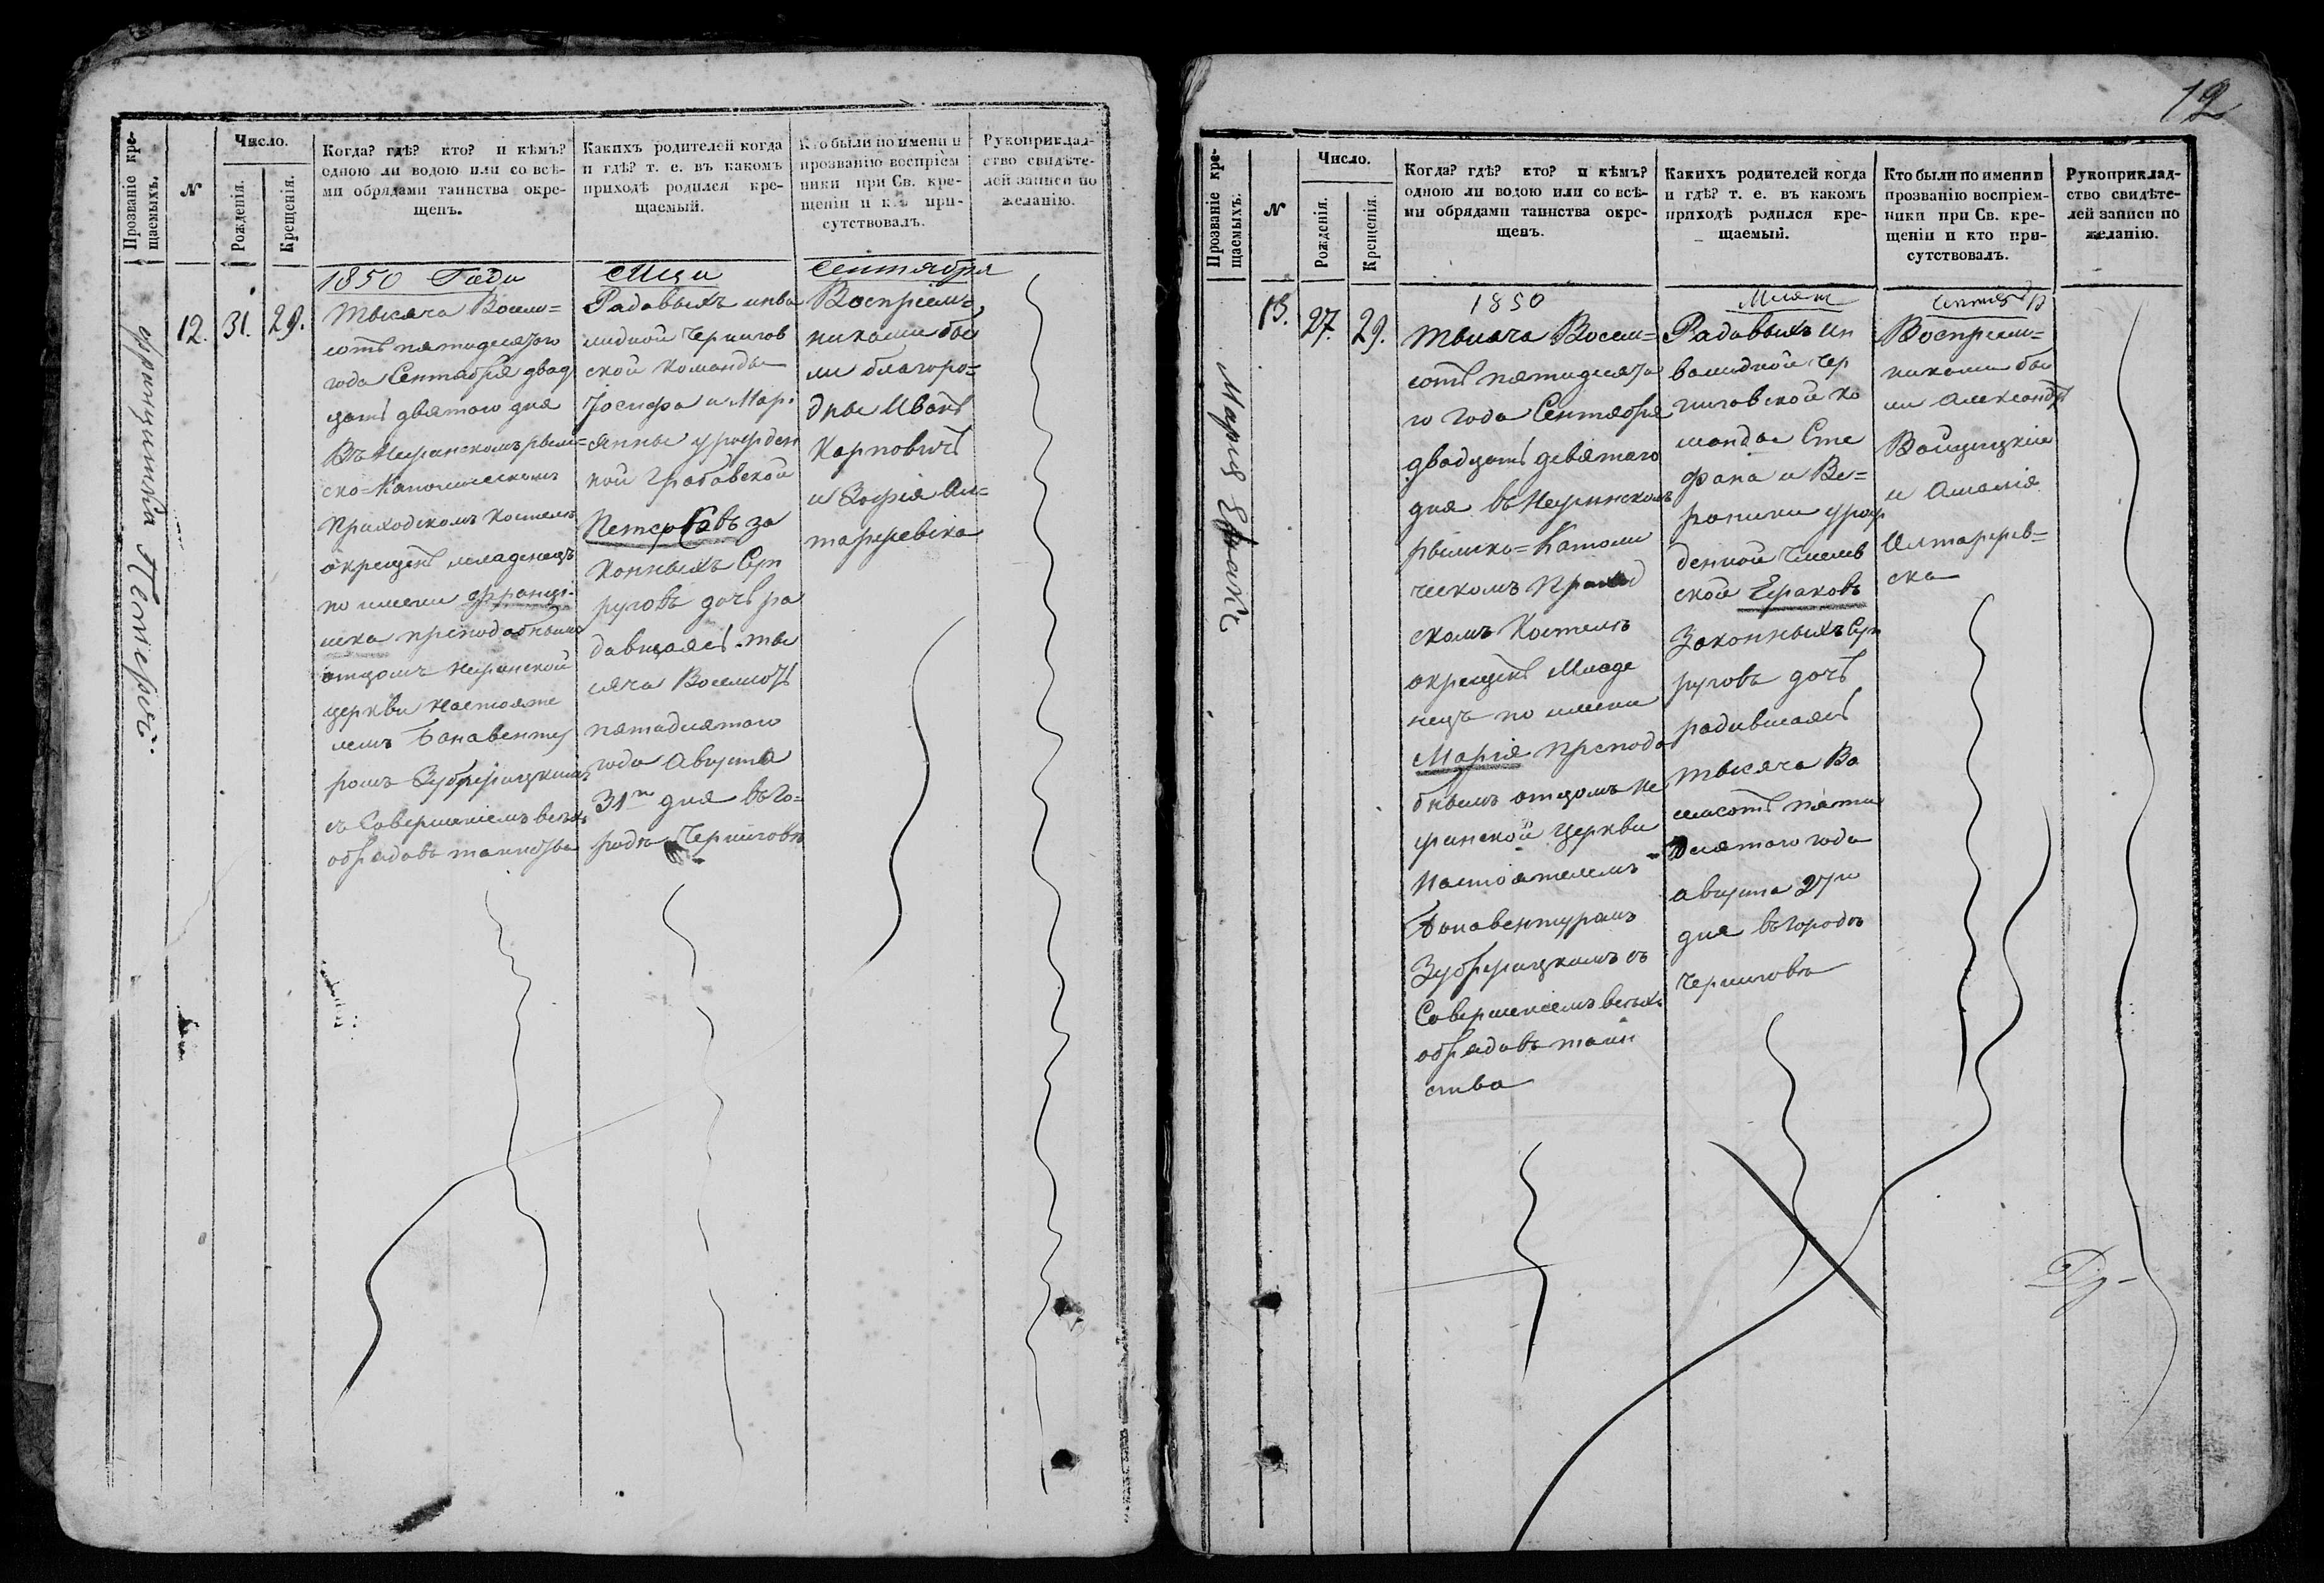 Прозваніе кре-
щаемыхъ.
N
Число.
Рожденія.
Крещенія.
Когда? гдѣ? кто? и кѣмъ?
одною ли водою или со всѣ-
ми обрядами таинства окре-
щенъ.
Какихъ родителей когда
и гдѣ? т. е. въ какомъ
приходѣ родился кре-
щаемый.
Кто были по имени и
прозванію воспріем
ники при Св. кре-
щеніи и кто при-
сутствовалъ.
Рукоприклад-
ство свидѣте-
лей записи по
желанію.
12.
31.
29.
1850 Года
Тысяча Восем=
сотъ пятидесятого
года Сентября двад
цать девятого дня
Въ Нежинскомъ рым=
ско=Католическомъ
Приходскомъ Костелѣ
окрещенъ младенецъ
по имени Францы-
шка преподобнымъ
отцомъ Нежинской
церкви Настояте
лемъ Бонавенту
ромъ
съ Совершеніемъ всѣхъ
обрядовъ таинства
Мца
Радовыхъ инва
лидной Чернигов
ской Команды
Іосифа и Марі
янны урожден
ной Грабовской
за
Конныхъ Суп
руговъ дочь ро
тыс
сяча Восемсотъ
пятидесятого
года Августа
31го дня въ го=
родѣ Черниговѣ
Сентября
Воспріем=
никами бы
ли благоро=
дные Иванъ
Карповичъ
и Зофія
12
Прозваніе кре-
щаемыхъ.
N
Число.
Рожденія.
Крещенія.
Когда? гдѣ? кто? и кѣмъ?
одною ли водою или со всѣ-
ми обрядами таинства окре-
щенъ.
Какихъ родителей когда
и гдѣ? т. е. въ какомъ
приходѣ родился кре-
щаемый.
Кто были по имени и
прозванію воспріем-
ники при Св. кре-
щеніи и кто при-
сутствовалъ.
Рукоприклад-
ство свидѣте-
лей записи по
желанію.
Марія
13.
27.
29.
1850
Тысяча Восем=
сотъ пятидесято
го года Сентября
двадцать девятого
дня въ Нежинскомъ
рымско=Католи
ческомъ Приход
скомъ Костелѣ
окрещенъ Младе
нецъ по имени
Марія преподо
бнымъ отцомъ Не
жинской Церкви
Настоятелемъ
Бонавентуромъ
съ
Совершеніемъ всѣхъ
обрядовъ таин
ства
Радовыхъ ин
валидной Чер
ниговской ко
манды Сте
фана и Ве=
роники урож
денной
ской
Законныхъ Суп
руговъ дочь
родившаясь
тысяча Во
семсотъ пяти
десятого года
августа 27го
дня въ городѣ
Черниговѣ
Воспріем=
никами бы
ли Александръ
и Амалія